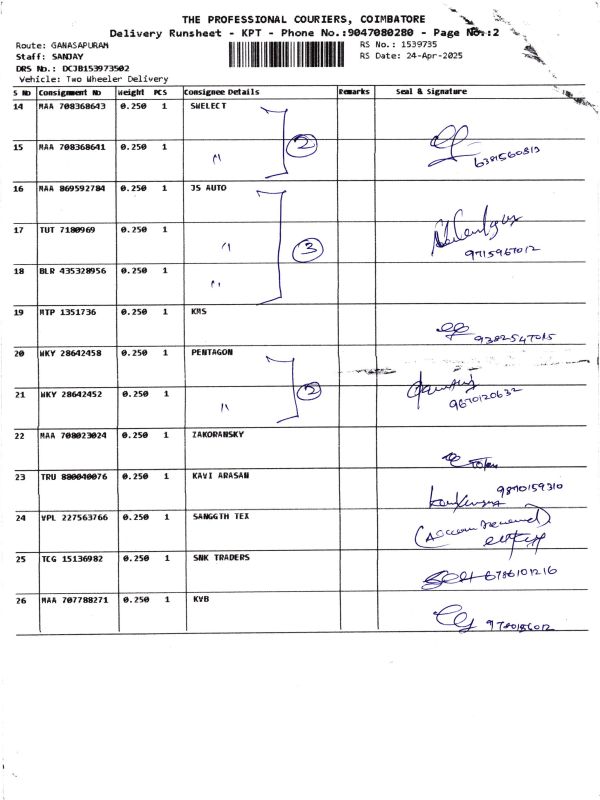 THE PROFESSIONAL COURIERS, COIMBATORE
Delivery Runsheet - KPT - Phone No.:9047080280 - Page No.:2
Route: GANASAPURAM
RS No.: 1539735
Staff: SANJAY
RS Date: 24-Apr-2025
DRS No.: DCJB153973502
Vehicle: Two Wheeler Delivery
S No Consignment No Weight PCS Consignee Details Remarks Seal & Signature
14 MAA 708368643 0.250 1 SWELECT
15 MAA 708368641 0.250 1 〃 2
6381560813
16 MAA 869592784 0.250 1 JS AUTO
17 TUT 7180969 0.250 1 〃 3
9715967012
18 BLR 435328956 0.250 1 〃
19 MTP 1351736 0.250 1 KMS
9382547015
20 WKY 28642458 0.250 1 PENTAGON
21 WKY 28642452 0.250 1 〃 2
9670120632
22 MAA 708023024 0.250 1 ZAKORANSKY
23 TRU 880040076 0.250 1 KAVI ARASAN
9870159310
24 VPL 227563766 0.250 1 SANGGTH TEX
25 TCG 15136982 0.250 1 SNK TRADERS
6786101216
26 MAA 707788271 0.250 1 KVB
9780186012